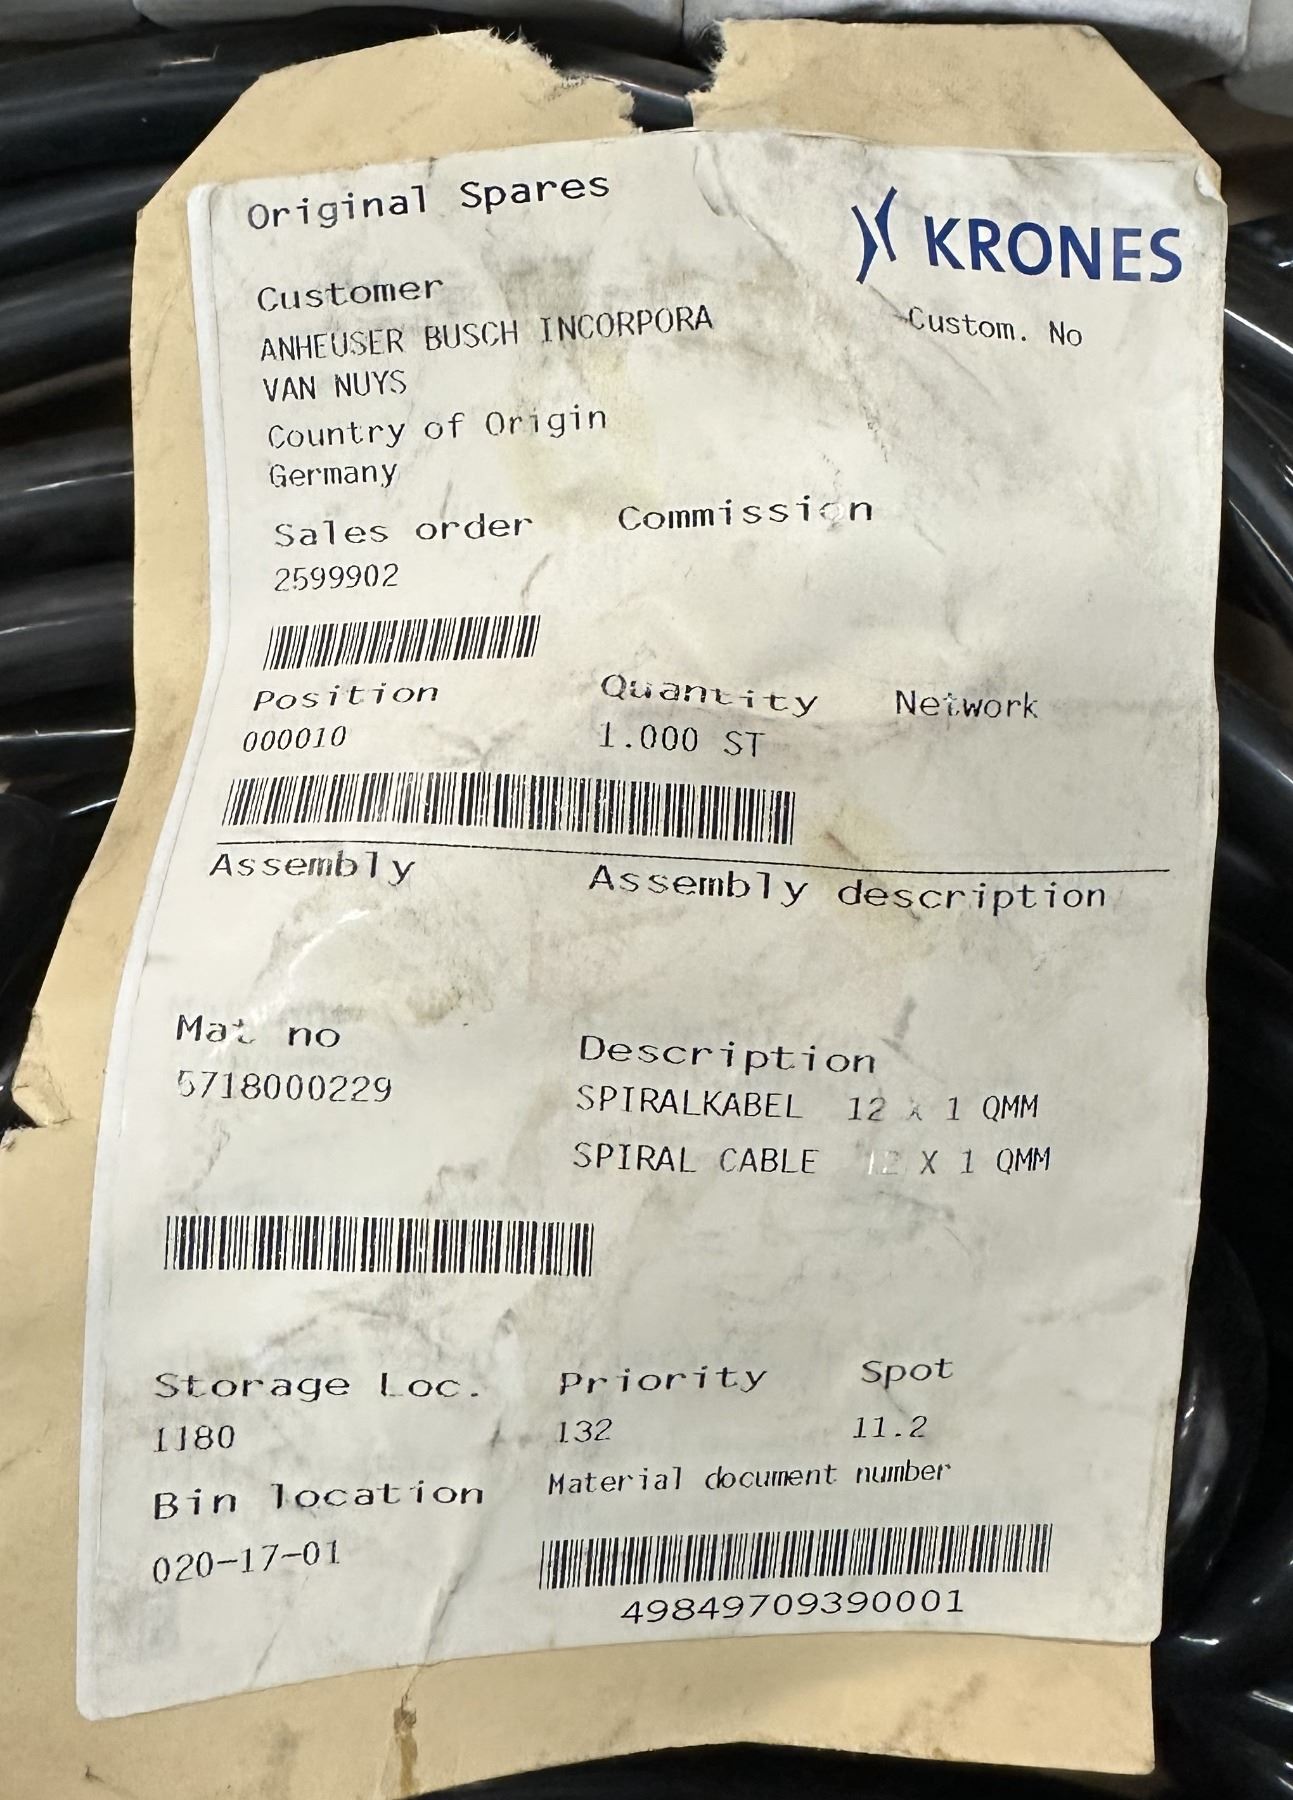 Original Spares
KRONES
Customer
Custom. No
ANHEUSER BUSCH INCORPORA
VAN NUYS
Country of Origin
Germany
Sales order Commission
2599902
Position Quantity Network
000010 1.000 ST
Assembly Assembly description
Mat no Description
5718000229 SPIRALKABEL 12 X 1 QMM
SPIRAL CABLE 12 X 1 QMM
Storage Loc. Priority Spot
1180 132 11.2
Bin location Material document number
020-17-01
49849709390001